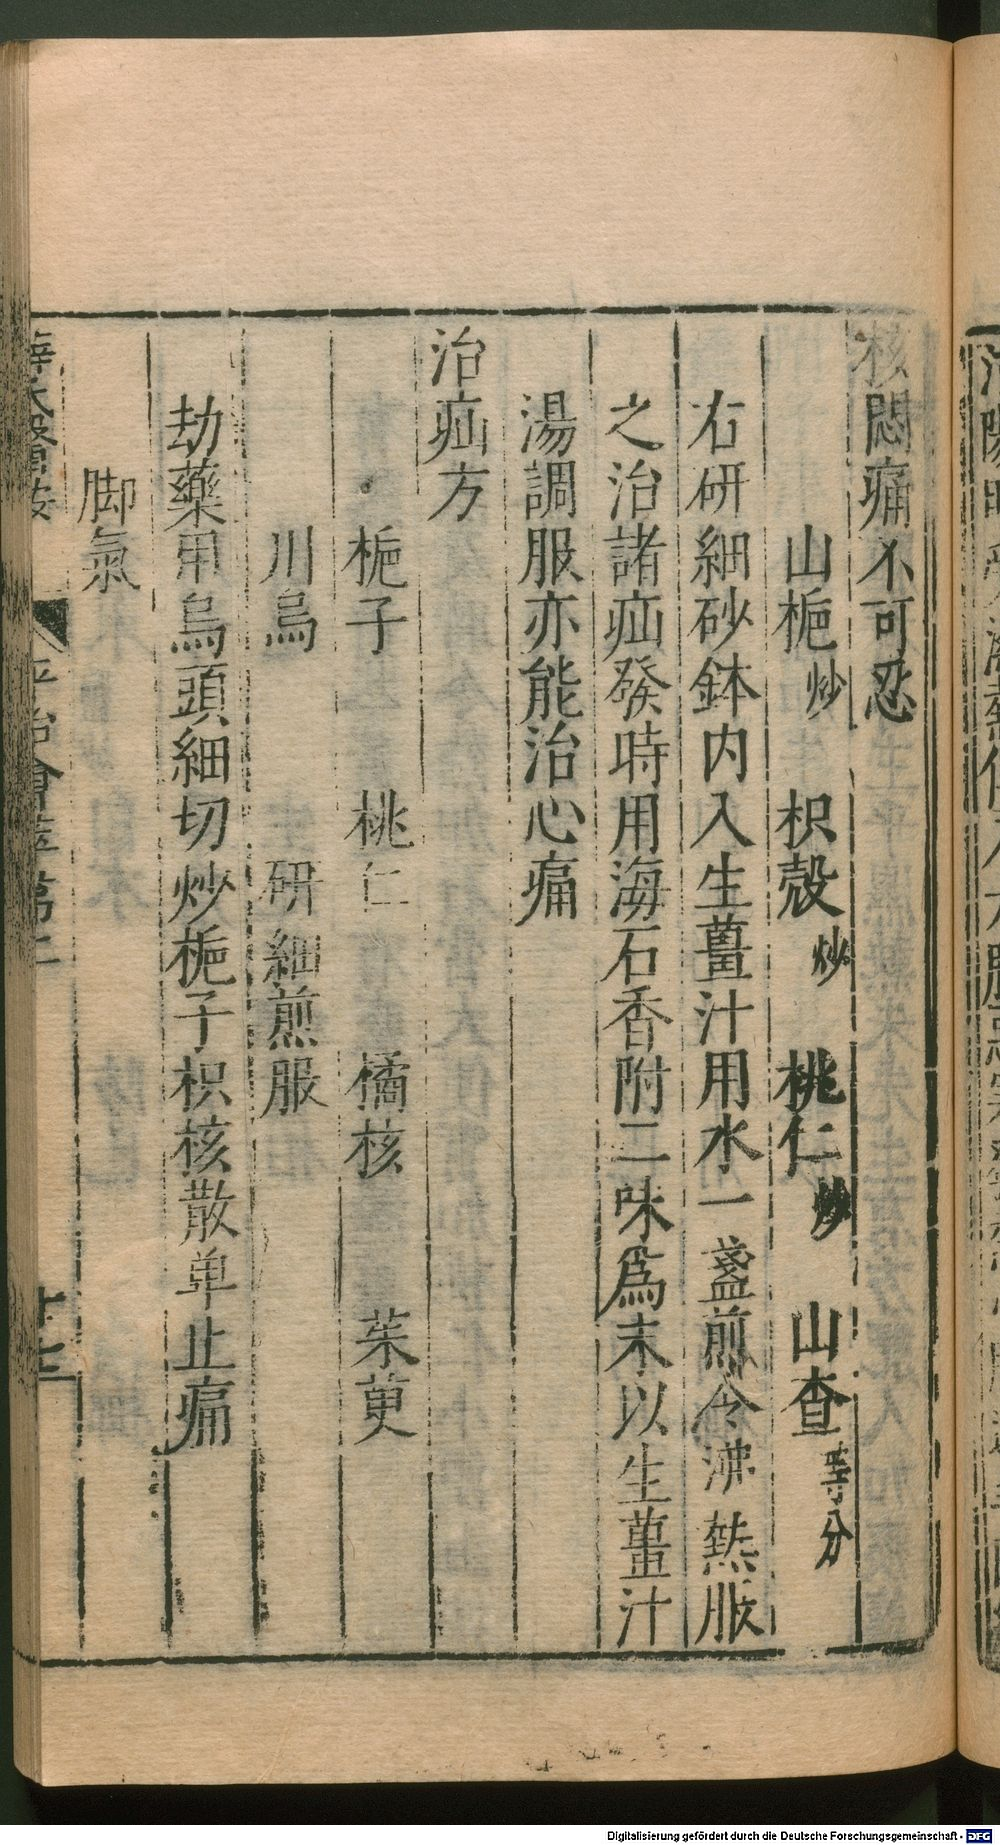 核悶痛不可忍
山梔炒 枳殼炒 桃仁炒 山查等分
右研細砂鉢内入生薑汁用水一盞煎令沸熱服
之治諸疝發時用海石香附二味爲末以生薑汁
湯調服亦能治心痛
治疝方
梔子 桃仁 橘核 茱萸
川烏 研細煎服
劫藥用烏頭細切炒梔子枳核散单止痛
脚氣
薛氏醫按 平治會萃第二 十七
Digitalisierung gefördert durch die Deutsche Forschungsgemeinschaft - DFG